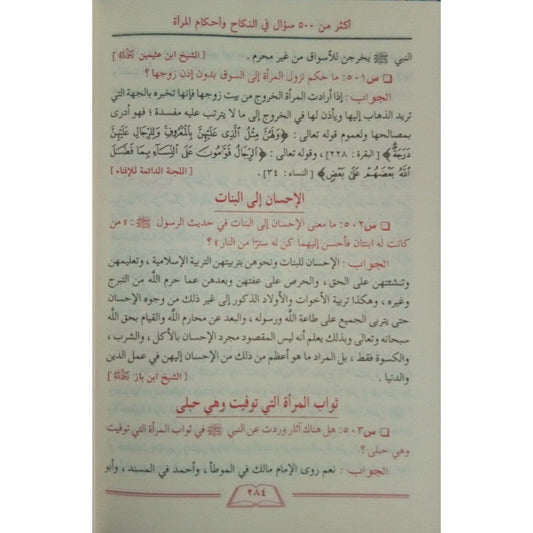 أكثر من ٥٠٠ سؤال في النكاح وأحكام المرأة
النبي ﷺ يخرجن للأسواق من غير محرم . [ الشيخ ابن عثيمين رحمه الله ]
❏ س٥٠١: ما حكم نزول المرأة إلى السوق بدون إذن زوجها ؟
الجواب : إذا أرادت المرأة الخروج من بيت زوجها فإنها تخبره بالجهة التي
تريد الذهاب إليها ويأذن لها في الخروج إلى ما لا يترتب عليه مفسدة ؛ فهو أدرى
بمصالحها ولعموم قوله تعالى : ﴿وَلَهُنَّ مِثْلُ الَّذِي عَلَيْهِنَّ بِالْمَعْرُوفِ وَلِلرِّجَالِ عَلَيْهِنَّ
دَرَجَةٌ﴾ [ البقرة : ٢٢٨ ] ، وقوله تعالى : ﴿الرِّجَالُ قَوَّامُونَ عَلَى النِّسَاءِ بِمَا فَضَّلَ
اللَّهُ بَعْضَهُمْ عَلَى بَعْضٍ﴾ [ النساء : ٣٤ ] . [ اللجنة الدائمة للإفتاء ]
الإحسان إلى البنات
❏ س٥٠٢: ما معنى الإحسان إلى البنات في حديث الرسول ﷺ : « من
كانت له ابنتان فأحسن إليهما كن له سترًا من النار » ؟
الجواب : الإحسان للبنات ونحوهن بتربيتهن التربية الإسلامية ، وتعليمهن
وتنشئتهن على الحق ، والحرص على عفتهن وبعدهن عما حرم الله من التبرج
وغيره ، وهكذا تربية الأخوات والأولاد الذكور إلى غير ذلك من وجوه الإحسان
حتى يتربى الجميع على طاعة الله ورسوله ، والبعد عن محارم الله والقيام بحق الله
سبحانه وتعالى وبذلك يعلم أنه ليس المقصود مجرد الإحسان بالأكل ، والشرب ،
والكسوة فقط ، بل المراد ما هو أعظم من ذلك من الإحسان إليهن في عمل الدين
والدنيا . [ الشيخ ابن باز رحمه الله ]
ثواب المرأة التي توفيت وهي حبلى
❏ س٥٠٣: هل هناك آثار وردت عن النبي ﷺ في ثواب المرأة التي توفيت
وهي حبلى ؟
الجواب : نعم روى الإمام مالك في الموطأ ، وأحمد في المسند ، وأبو
٢٨٤